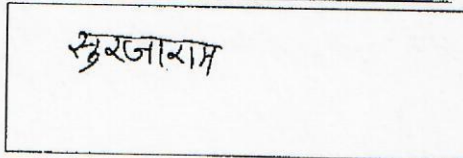 सुरजाराम